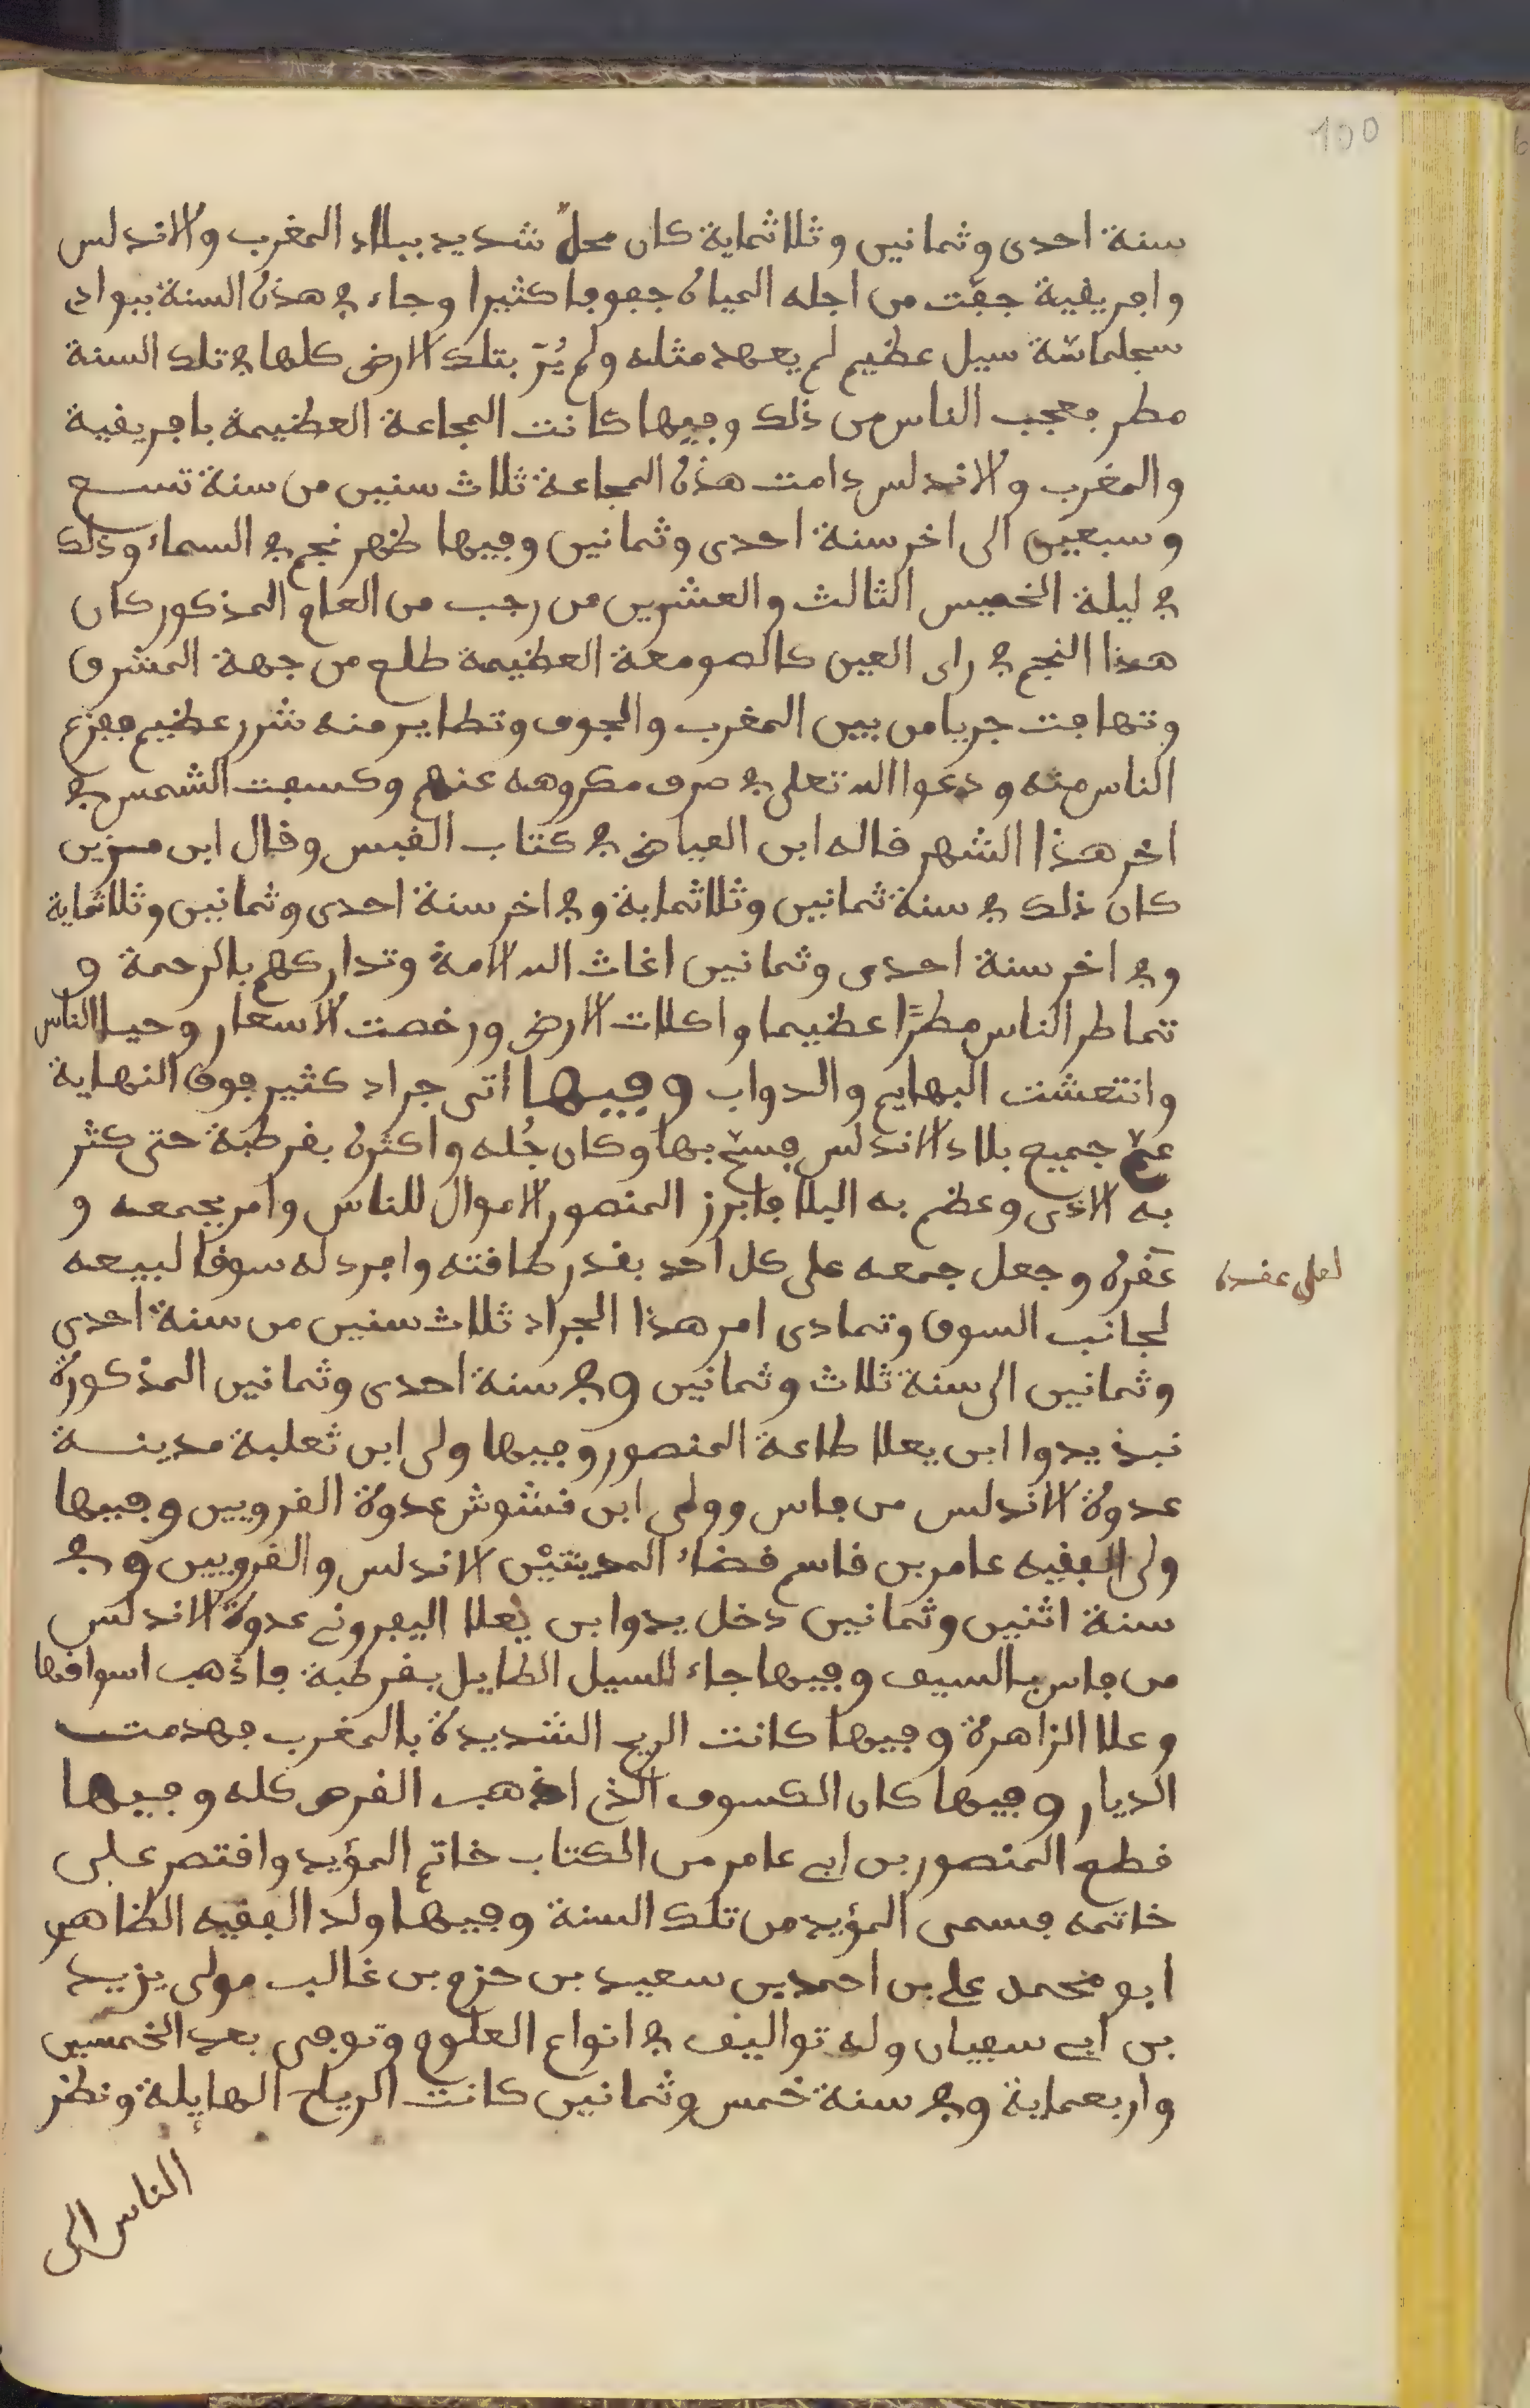 100
سنة احدى وثمانين وثلاثماية كان محلٌ شديد ببلاد المغرب والاندلس
وافريقية جفّت من اجله المياه جفوفا كثيرا وجاء في هذه السنة ببوادي
سجلماسّة سيل عظيم لم يعهد مثله ولم يُرَ بتلك الارض كلها في تلك السنة
مطر فعجب الناس من ذلك وفيها كانت المجاعة العظيمة بافريقية
والمغرب والاندلس دامت هذه المجاعة ثلاث سنين من سنة تسع
وسبعين الى اخر سنة احدى وثمانين وفيها ظهر نجم في السماء وذلك
في ليلة الخميس الثالث والعشرين من رجب من العام المذكور كان
هذا النجم في راى العين كالصومعة العظيمة طلع من جهة المشرق
وتهافت جريا من بين المغرب والجوف وتطاير منه شرر عظيم ففزع
الناس منه ودعوا الله تعلى في صرف مكروهه عنهم وكسفت الشمس في
اخر هذا الشهر قاله ابن الفياض في كتاب القبس وقال ابن مزين
كان ذلك في سنة ثمانين وثلاثماية وفي اخر سنة احدى وثمانين وثلاثماية
وفي اخر سنة احدى وثمانين اغاث الله الامة وتداركهم بالرحمة و
تماطر الناس مطرًا عظيما واكلات الارض ورخصت الاسعار وحيا الناس
وانتعشت البهايم والدواب وفيها اتى جراد كثير فوق النهاية
عمّ جميع بلاد الاندلس فسمّ بها وكان جُله واكثره بقرطبة حتى كثر
به الاذى وعظم به البلا فابرز المنصور الاموال للناس وامر بجمعه و
عَقره وجعل جمعه على كل احد بقدر طاقته وافرد له سوقا لبيعه
لعلى عقده
لجانب السوق وتمادى امر هذا الجراد ثلاث سنين من سنة احدى
وثمانين الى سنة ثلاث وثمانين وفي سنة احدى وثمانين المذكورة
نبذ يدوا ابن يعلا طاعة المنصور وفيها ولى ابن ثعلبة مدينة
عدوة الاندلس من فاس وولى ابن قشوش عدوة القرويين وفيها
ولى الفقيه عامر بن قاسم قضاء المدينتيْن الاندلس والقرويين وفي
سنة اثنين وثمانين دخل يدوا بن يعلا اليفرونى عدوة الاندلس
من فاس بالسيف وفيها جاء السيل الطايل بقرطبة فاذهب اسواقها
وعلا الزاهرة وفيها كانت الريح الشديدة بالمغرب فهدمت
الديار وفيها كان الكسوف الذى اذهب القرص كله وفيها
قطع المنصور بن ابى عامر من الكتاب خاتم المؤيد واقتصر على
خاتمه فسمى المؤيد من تلك السنة وفيها ولد الفقيه الظاهرى
ابو محمد على بن احمد بن سعيد بن حزم بن غالب مولى يزيد
بن ابى سفيان وله تواليف في انواع العلوم وتوفى بعد الخمسين
واربعماية وفي سنة خمس وثمانين كانت الرياح الهايلة ونظر
الناس الى